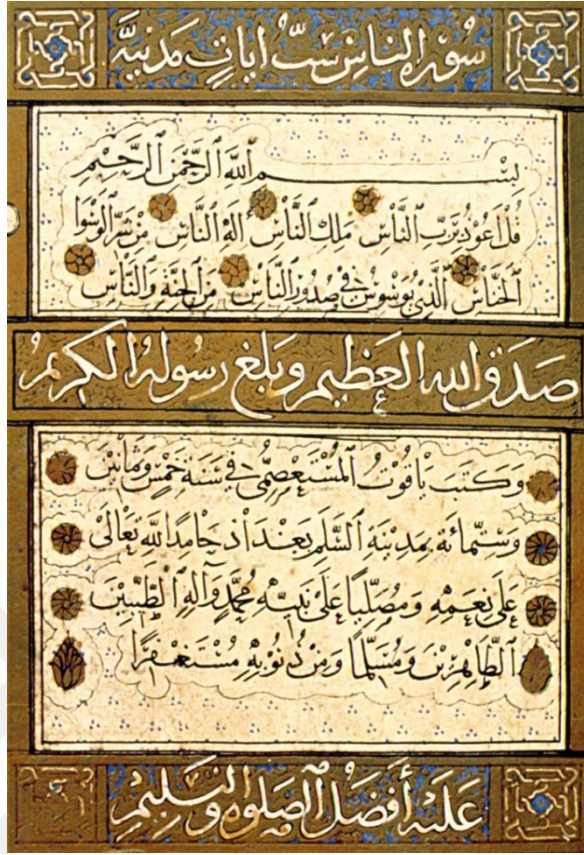 سورة الناس ست ايات مدنية
بسم الله الرحمن الرحيم
قل اعوذ برب الناس ملك الناس اله الناس من شر الوسوا
الخناس الذي يوسوس في صدور الناس من الجنة والناس
صدق الله العظيم وبلغ رسوله الكريم
وكتب ياقوت المستعصمي في سنة خمس وثمانين
وستمائة بمدينة السلم بغداذ حامدا لله تعالى
على نعمه ومصليا على نبيه محمد وآله الطيبين
الطاهرين ومسلما ومن ذنوبه مستغفرا
عليه أفضل الصلوة والتسليم